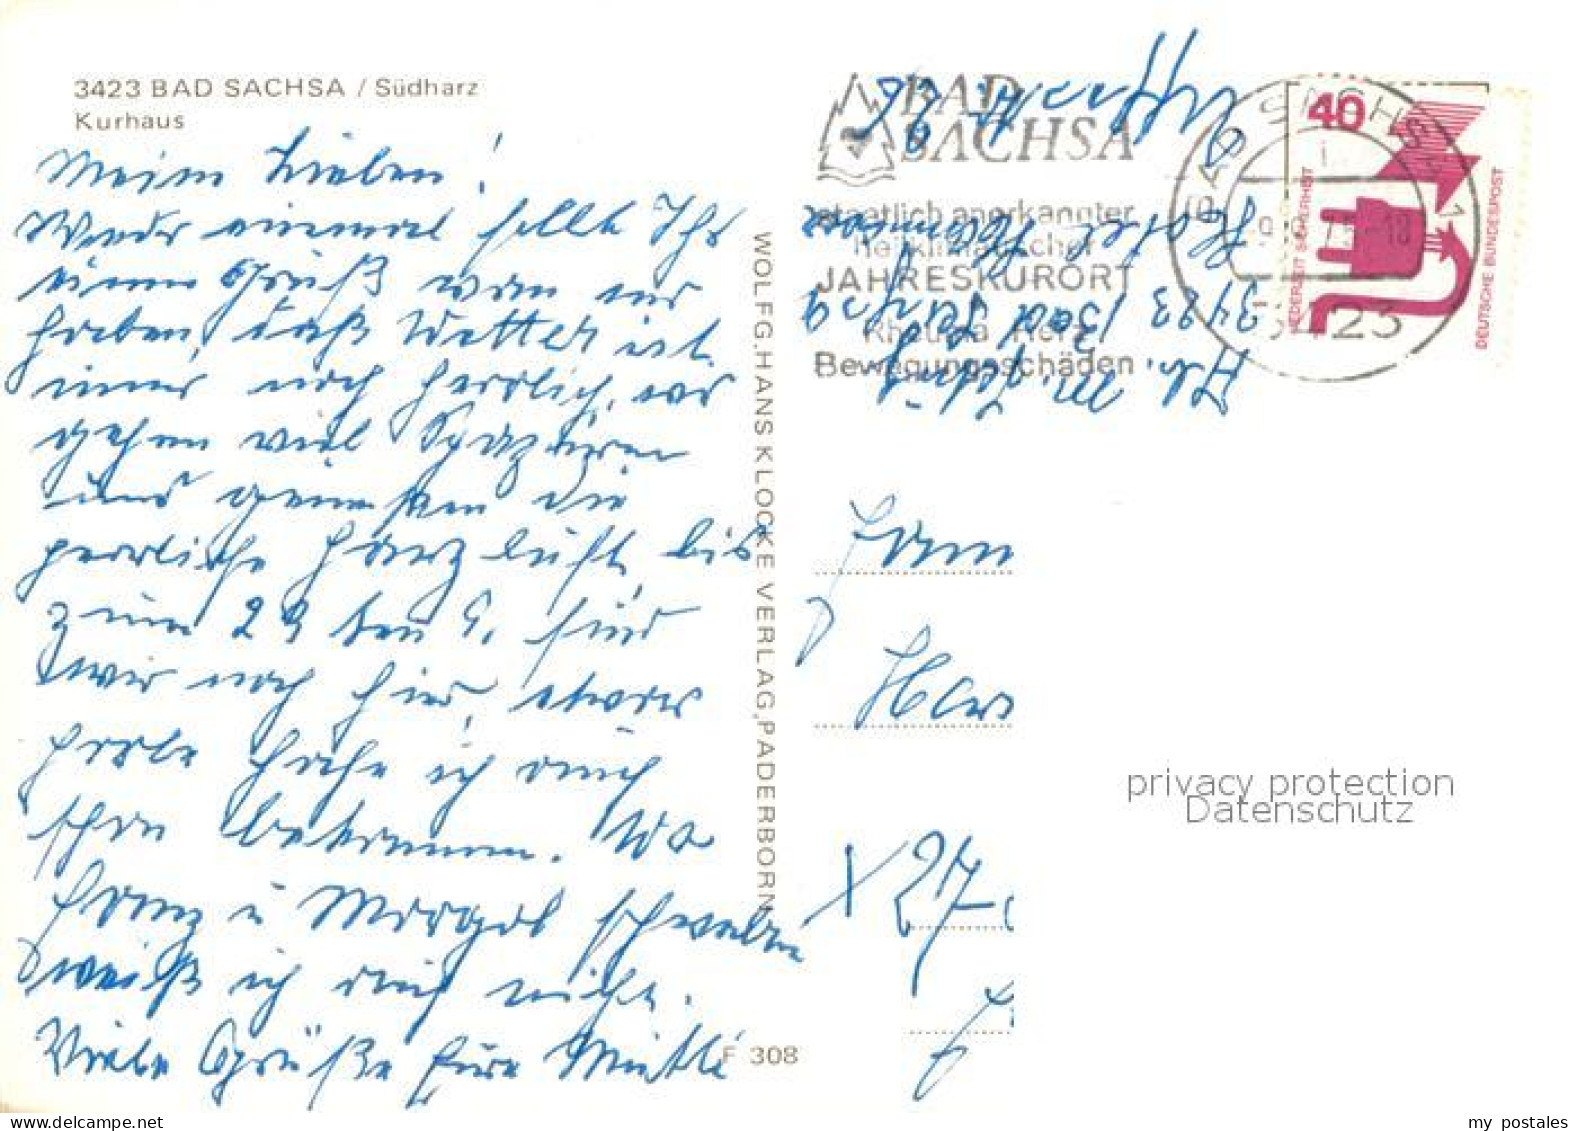 3423 BAD SACHSA / Südharz
Kurhaus
Meine Lieben!
Wieder einmal sollt Ihr
einen Gruß von uns
haben, das Wetter ist
immer noch herrlich, wir
gehen viel Spazieren
und genießen die
herrliche Harzluft, bis
zum 29 ten 9. sind
wir noch hier, etwas
Farbe habe ich auch
schon bekommen. Wo
Franz u Margot
weiß ich auch nicht.
Viele Grüße Eure Mutti
WOLFG. HANS KLOCKE VERLAG, PADERBORN
F 308
BAD
SACHSA
staatlich anerkannter
heilklimatischer
JAHRESKURORT
Rheuma Herz
Bewegungsschäden
BAD SACHSA 1
3423
40
JEDERZEIT SICHERHEIT
DEUTSCHE BUNDESPOST
Abs.
3423 Bad Sachsa
Hotel
Fam
Han
X 27
privacy protection
Datenschutz
my postales